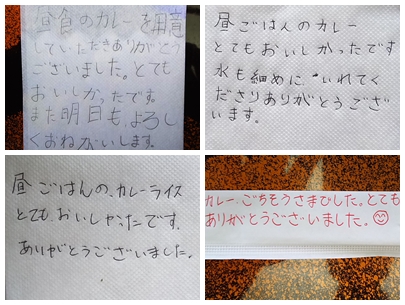 昼食のカレーを用意
していただきありがとう
ございました。とても
おいしかったです。
また明日も、よろし
くおねがいします。
昼ごはんのカレー
とてもおいしかったです
水も細めに、いれてく
ださりありがとうござい
います。
昼ごはんの、カレーライス
とても、おいしかったです。
ありがとうございました。
カレー、ごちそうさまでした。とても
ありがとうございました。